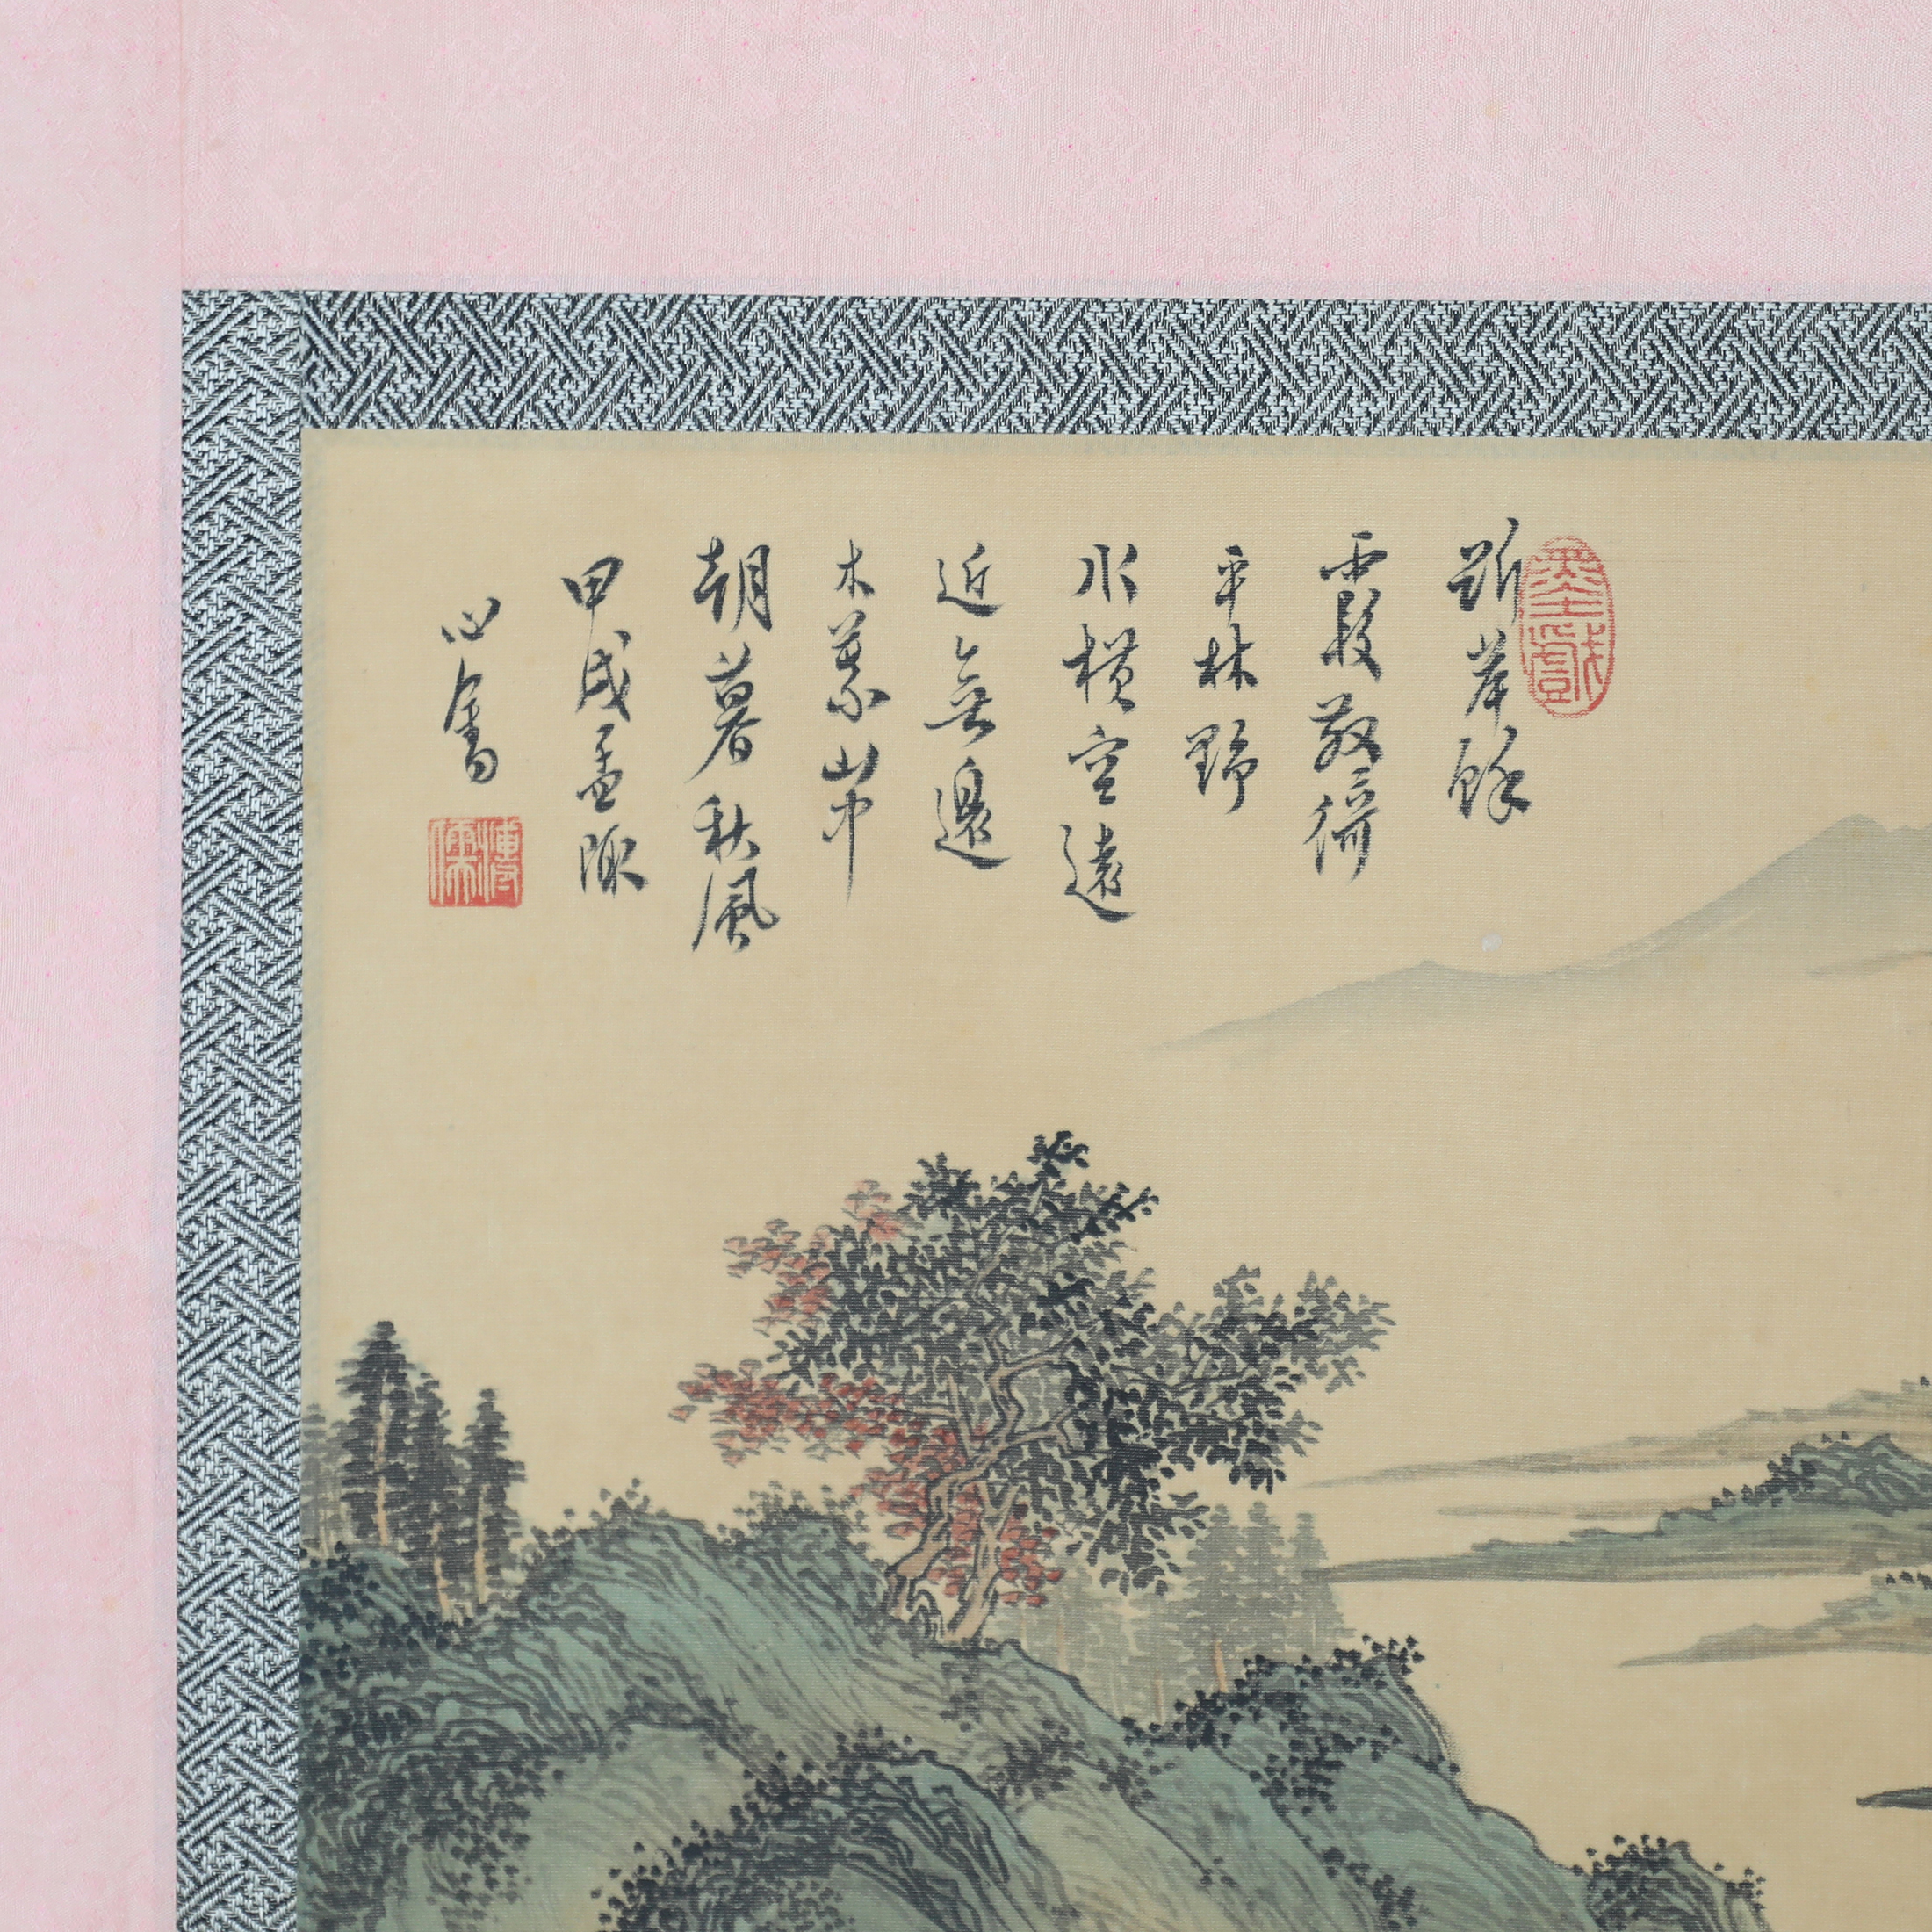 斷岸餘
霞散綺
平林野
水橫空遠
近無邊
木葉山中
朝暮秋風
甲戌孟陬
心畬
溥儒